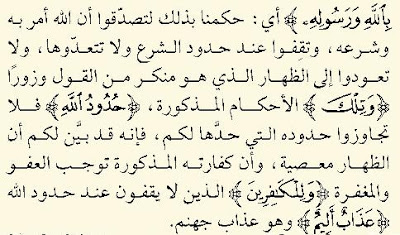 بِاللَّهِ وَرَسُولِهِۦ ﴾ أي: حكمنا بذلك لتصدّقوا أن الله أمر به
وشرعه، وتقِفوا عند حدود الشرع ولا تتعدّوها، ولا
تعودوا إلى الظهار الذي هو منكر من القول وزورًا
﴿ وَتِلْكَ ﴾ الأحكام المذكورة، ﴿ حُدُودُ اللَّهِ ﴾ فلا
تجاوزوا حدوده التي حدَّها لكم، فإنه قد بيَّن لكم أن
الظهار معصية، وأن كفارته المذكورة توجب العفو
والمغفرة ﴿ وَلِلْكَٰفِرِينَ ﴾ الذين لا يقفون عند حدود الله
﴿ عَذَابٌ أَلِيمٌ ﴾ وهو عذاب جهنم.